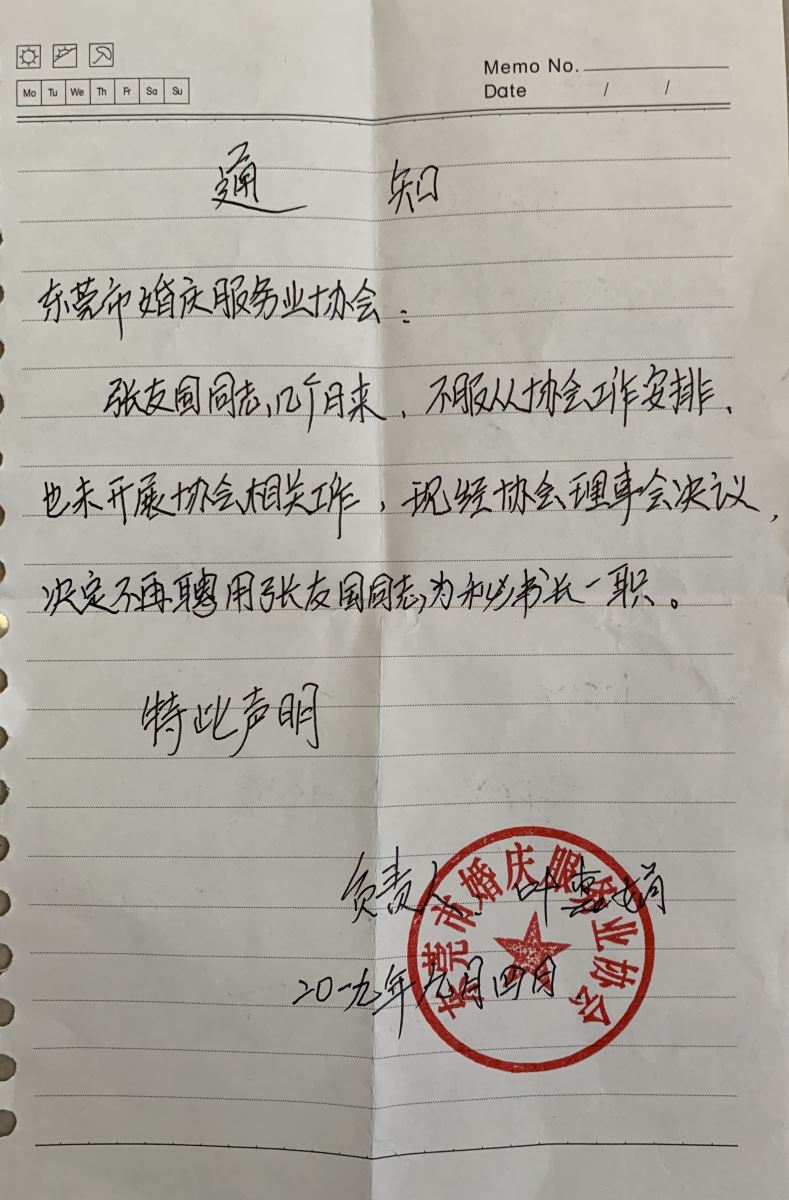 Memo No.
Mo Tu We Th Fr Sa Su
Date / /
通 知
东莞市婚庆服务业协会：
张友国同志，几个月来，不服从协会工作安排、
也未开展协会相关工作，现经协会理事会决议，
决定不再聘用张友国同志，为秘书长一职。
特此声明
负责人：叶惠娟
二〇一九年元月四日
东莞市婚庆服务业协会